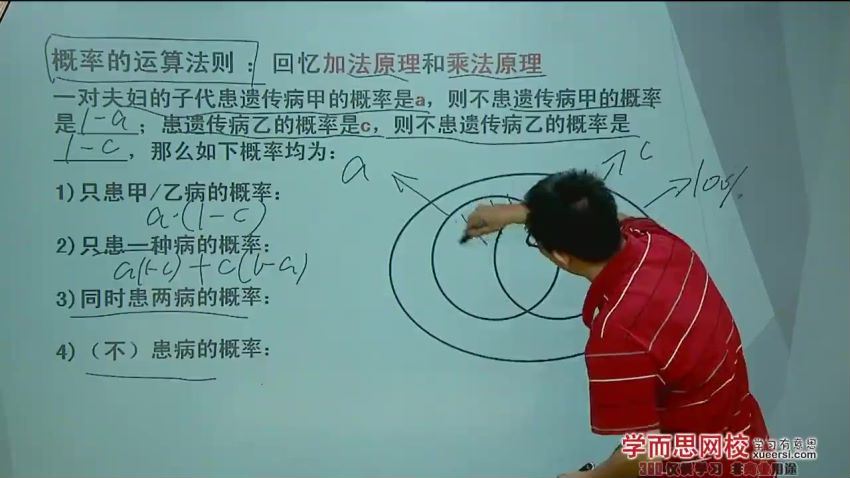 概率的运算法则：回忆加法原理和乘法原理
一对夫妇的子代患遗传病甲的概率是a，则不患遗传病甲的概率
是1-a；患遗传病乙的概率是c，则不患遗传病乙的概率是
1-c，那么如下概率均为：
a
c
100%
1）只患甲/乙病的概率：
a·(1-c)
2）只患一种病的概率：
a(1-c)+c(1-a)
3）同时患两病的概率：
4）（不）患病的概率：
学而思网校
学习有意思
xueersi.com